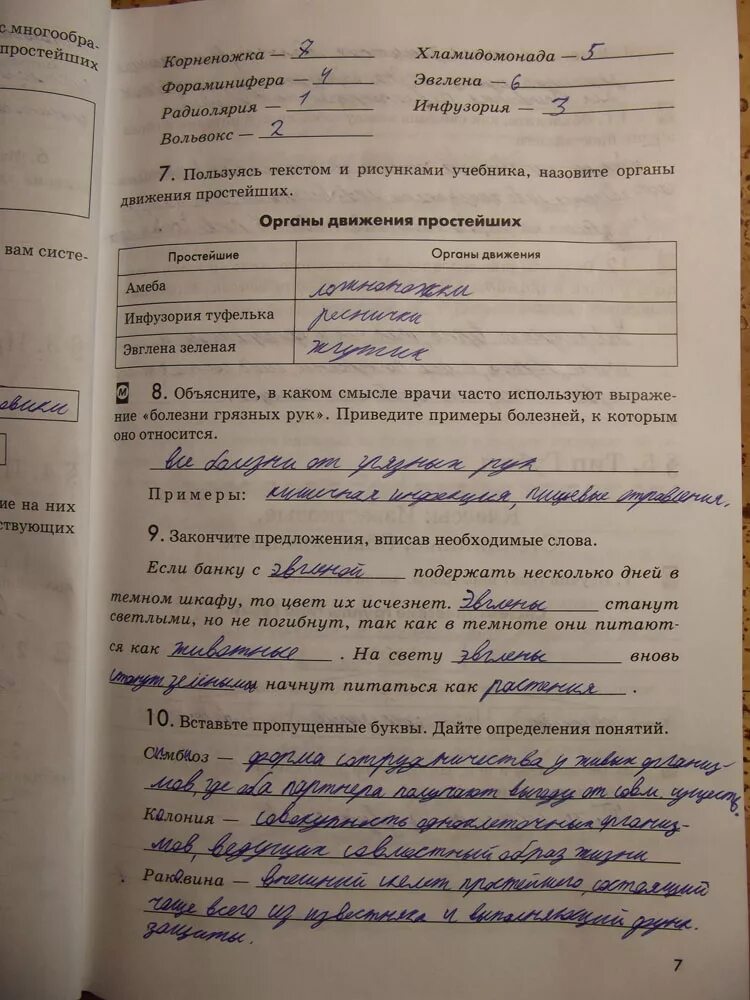 с многообра-
простейших
вам систе-
овики
ие на них
ствующих
Корненожка — 7 Хламидомонада — 5
Фораминифера — 4 Эвглена — 6
Радиолярия — 1 Инфузория — 3
Вольвокс — 2
7. Пользуясь текстом и рисунками учебника, назовите органы
движения простейших.
Органы движения простейших
Простейшие Органы движения
Амеба ложноножки
Инфузория туфелька реснички
Эвглена зеленая жгутик
М 8. Объясните, в каком смысле врачи часто используют выраже-
ние «болезни грязных рук». Приведите примеры болезней, к которым
оно относится.
все болезни от грязных рук
Примеры: кишечная инфекция, пищевые отравления.
9. Закончите предложения, вписав необходимые слова.
Если банку с эвгленой подержать несколько дней в
темном шкафу, то цвет их исчезнет. Эвглены станут
светлыми, но не погибнут, так как в темноте они питают-
ся как животные. На свету эвглены вновь
станут зелеными начнут питаться как растения.
10. Вставьте пропущенные буквы. Дайте определения понятий.
Симбиоз — форма сотрудничества у живых организ-
мов, где оба партнера получают выгоду от совм. существ.
Колония — совокупность одноклеточных организ-
мов, ведущих совместный образ жизни
Раковина — внешний скелет простейшего, состоящий
чаще всего из известняка и выполняющий функ.
защиты.
7